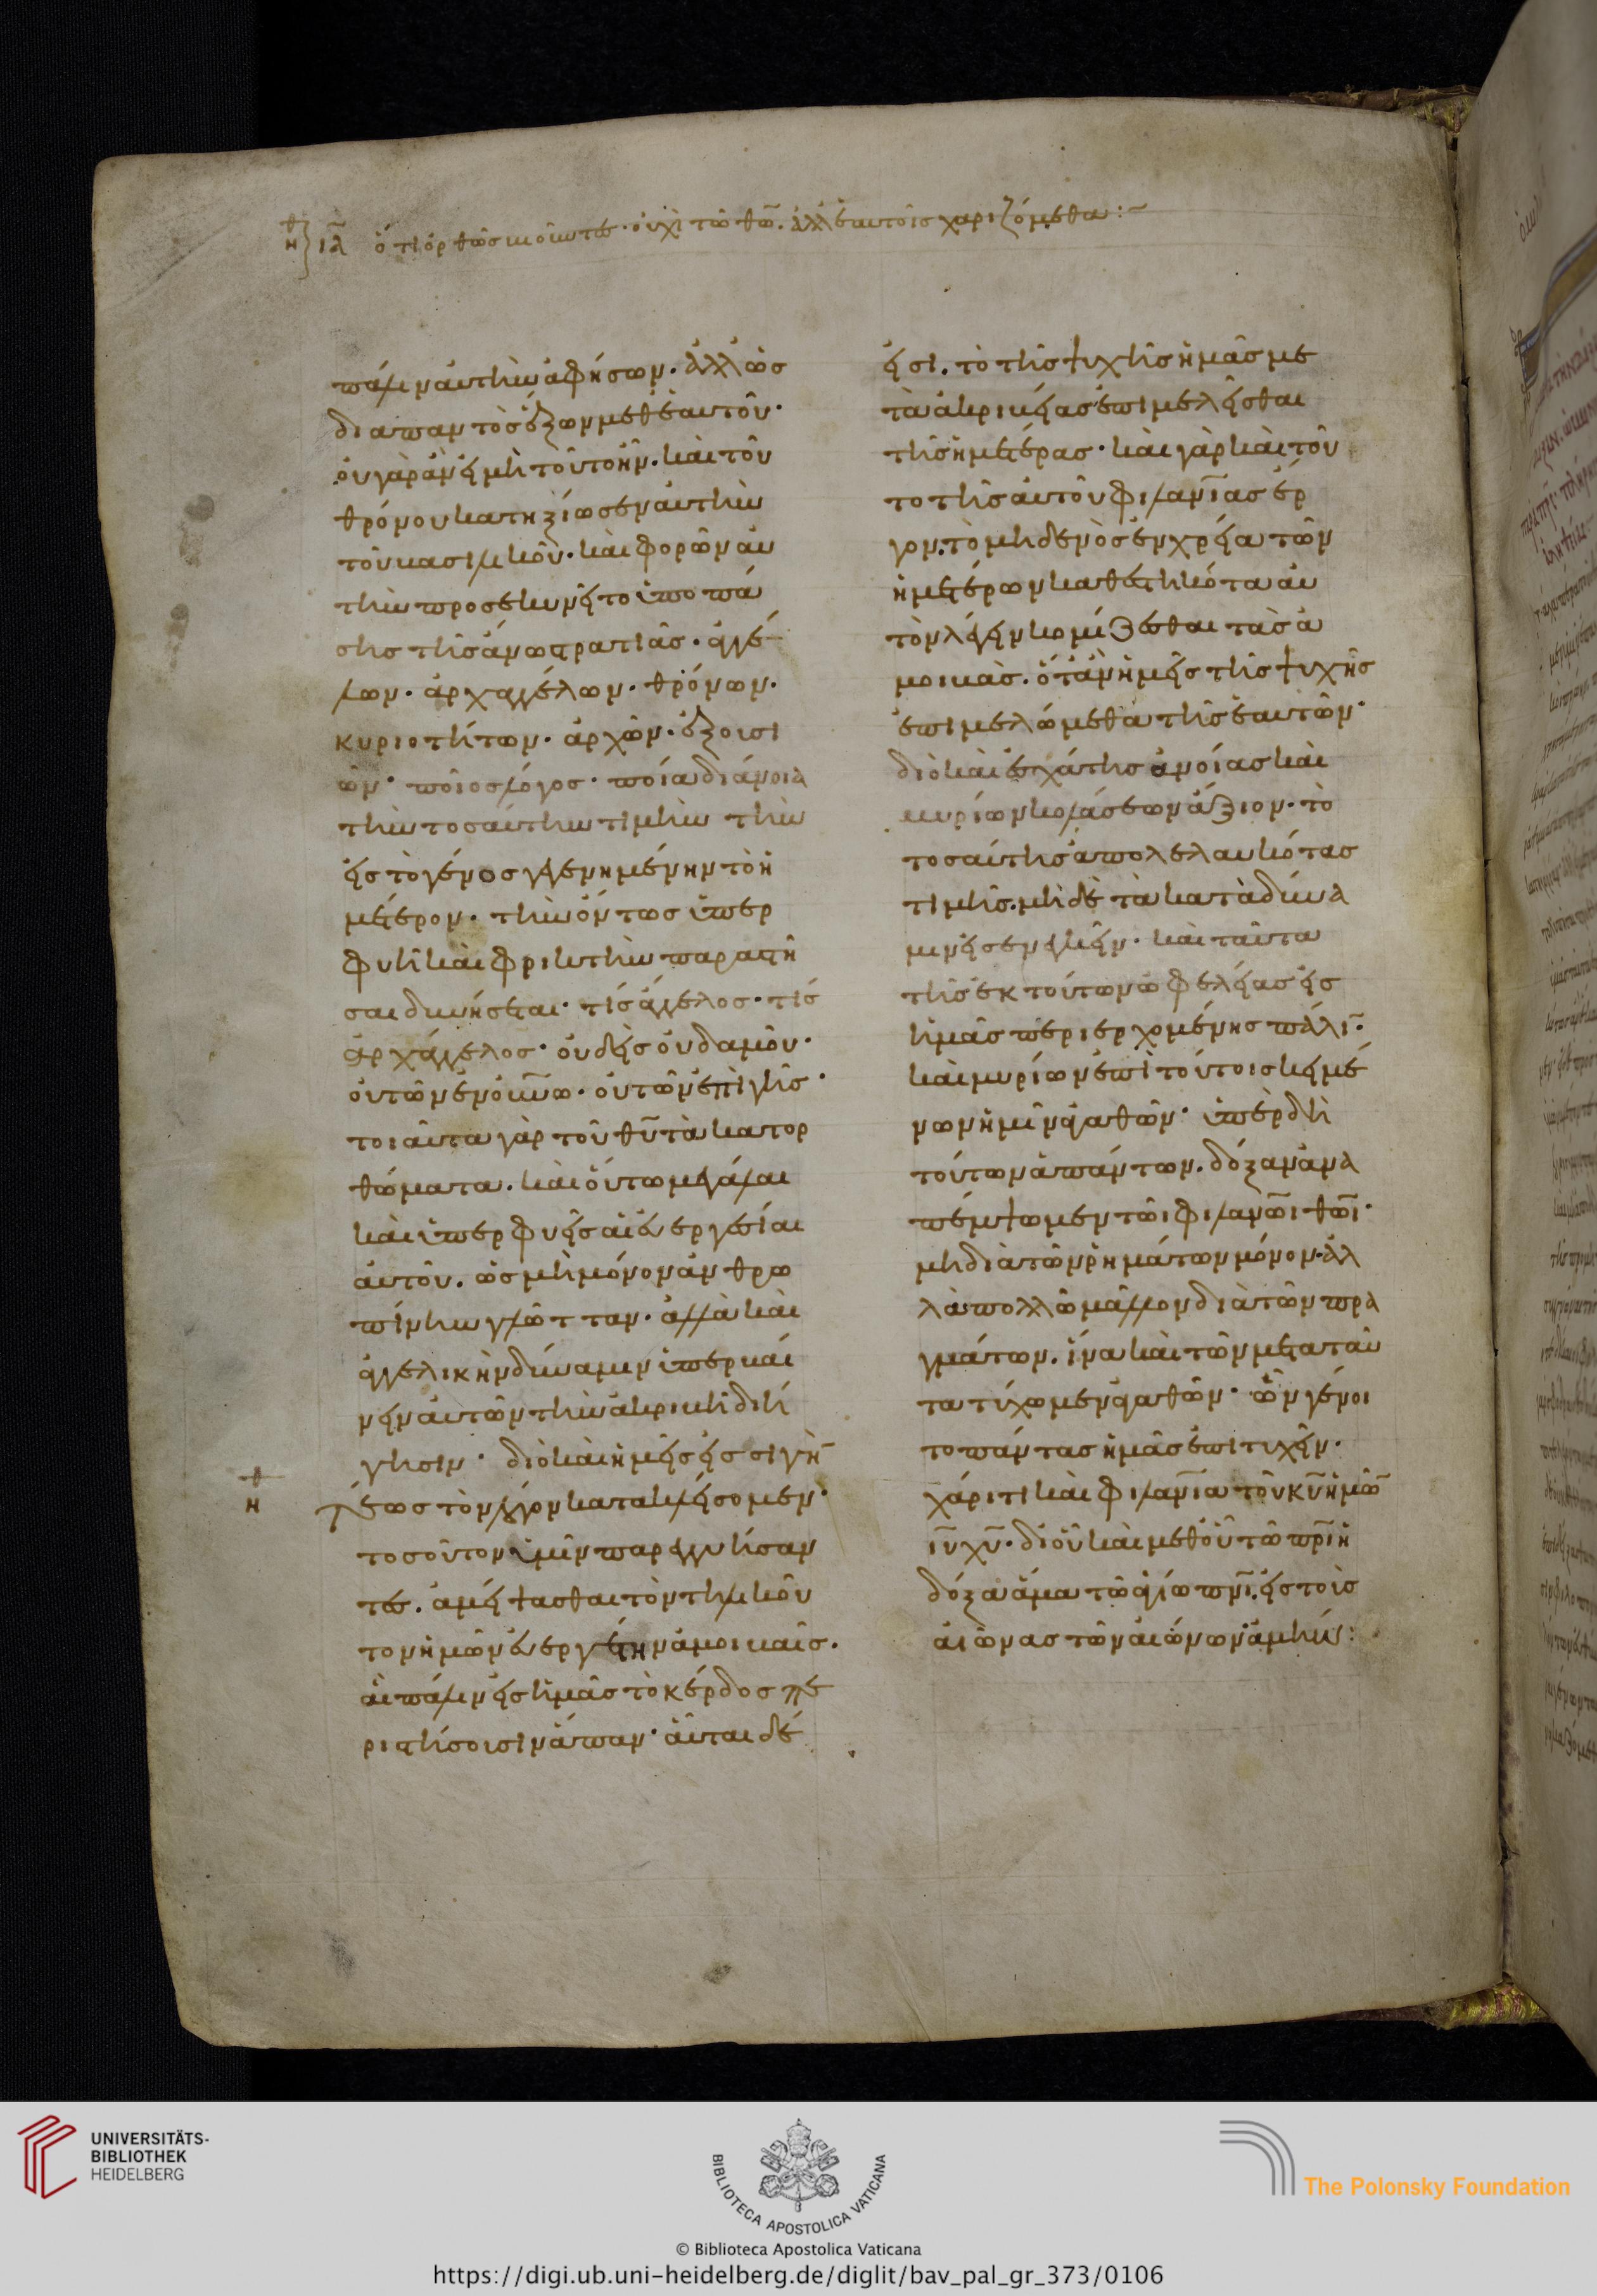 θη } ιᾱ ὅτι ὀρθῶς βιοῦντες· οὐχὶ τῶ θῶ̄. ἀλλ' ἑαυτοῖς χαριζόμεθα :~
πάλιν αὐτὴν ἀφήσων. ἀλλ' ὡς
διαπαντὸς ἕξων μεθ' ἑαυτοῦ·
οὐ γὰρ ἂν εἰ μὴ τοῦτο ἦν. καὶ τοῦ
θρόνου κατηξίωσεν αὐτὴν
τοῦ βασιλικοῦ· καὶ φορῶν αὐ
τὴν προσεκυνεῖτο ὑπὸ πά
σης τῆς ἄνω στρατιᾶς. ἀγγέ
λων. ἀρχαγγέλων. θρόνων.
κυριοτήτων. ἀρχῶν. ἐξουσι
ῶν· ποῖος λόγος· ποία διάνοια
τὴν τοσαύτην τιμὴν τὴν
εἰς τὸ γένος γεγενημένην τὸ ἡ
μέτερον. τὴν ὄντως ὑπερ
φυῆ καὶ φρικτὴν παραστῆ
σαι δυνήσεται· τίς ἄγγελος· τίς
ἀρχάγγελος· οὐδεὶς οὐδαμοῦ·
οὐ τῶν ἐν οὐν̄ω· οὐ τῶν ἐπὶ γῆς·
τοιαῦτα γὰρ τοῦ θῡ τὰ κατορ
θώματα. καὶ οὕτω μεγάλαι
καὶ ὑπερφυεῖς αἱ εὐεργεσίαι
αὐτοῦ. ὡς μὴ μόνον ἀνθρω
πίνην γλῶτταν. ἀλλὰ καὶ
ἀγγελικὴν δύναμιν ὑπερβαί
νειν αὐτῶν τὴν ἀκριβῆ διή
γησιν· διὸ καὶ ἡμεῖς εἰς σιγὴ̄
θη τέως τὸν λόγον κατακλείσομεν·
τοσοῦτον ὑμῖν παρεγγυήσαν
τες. ἀμείψασθαι τὸν τηλικοῦ
τον ἡμῶν εὐεργέτην ἀμοιβαῖς.
αἳ πάλιν εἰς ἡμᾶς τὸ κέρδος πε
ριστήσουσιν ἅπαν· αὗται δέ
εἰσι. τὸ τῆς ψυχῆς ἡμᾶς με
τὰ ἀκριβείας ἐπιμελεῖσθαι
τῆς ἡμετέρας· καὶ γὰρ καὶ τοῦ
το τῆς αὐτοῦ φιλαν̄ίας ἔρ
γον. τὸ μηδενὸς ἐν χρεία τῶν
ἡμετέρων καθεστηκότα αὐ
τὸν λέγειν κομίζεσθαι τὰς ἀ
μοιβὰς. ὅτ' ἂν ἡμεῖς τῆς ψυχῆς
ἐπιμελώμεθα τῆς ἑαυτῶν·
διὸ καὶ ἐσχάτης ἀνοίας καὶ
μυρίων κολάσεων ἄξιον. τὸ
τοσαύτης ἀπολελαυκότας
τιμῆς. μηδὲ τὰ κατὰ δύνα
μιν εἰσενεγκεῖν· καὶ ταῦτα
τῆς ἐκ τούτων ὠφελείας εἰς
ἡμᾶς περιερχομένης πάλῑ·
καὶ μυρίων ἐπὶ τούτοις κειμέ
νων ἡμῖν ἀγαθῶν· ὑπὲρ δὴ
τούτων ἁπάντων. δόξαν ἀνα
πέμψωμεν τῶι φιλανῶ̄ι θῶ̄ι·
μὴ διὰ τῶν ῥημάτων μόνον. ἀλ
λὰ πολλῶ μᾶλλον διὰ τῶν πρα
γμάτων. ἵνα καὶ τῶν μετὰ ταῦ
τα τύχωμεν ἀγαθῶν· ὧν γένοι
το πάντας ἡμᾶς ἐπιτυχεῖν·
χάριτι καὶ φιλαν̄ία τοῦ κῡ ἡμῶ̄
ιῡ χῡ· δι' οὗ καὶ μεθ' οὗ τῶ πρ̄ι ἡ
δόξα ἅμα τῶ ἁγίω πν̄ι. εἰς τοὺς
αἰῶνας τῶν αἰώνων ἀμήν:
UNIVERSITÄTS-
BIBLIOTHEK
HEIDELBERG
BIBLIOTECA APOSTOLICA VATICANA
The Polonsky Foundation
© Biblioteca Apostolica Vaticana
https://digi.ub.uni-heidelberg.de/diglit/bav_pal_gr_373/0106